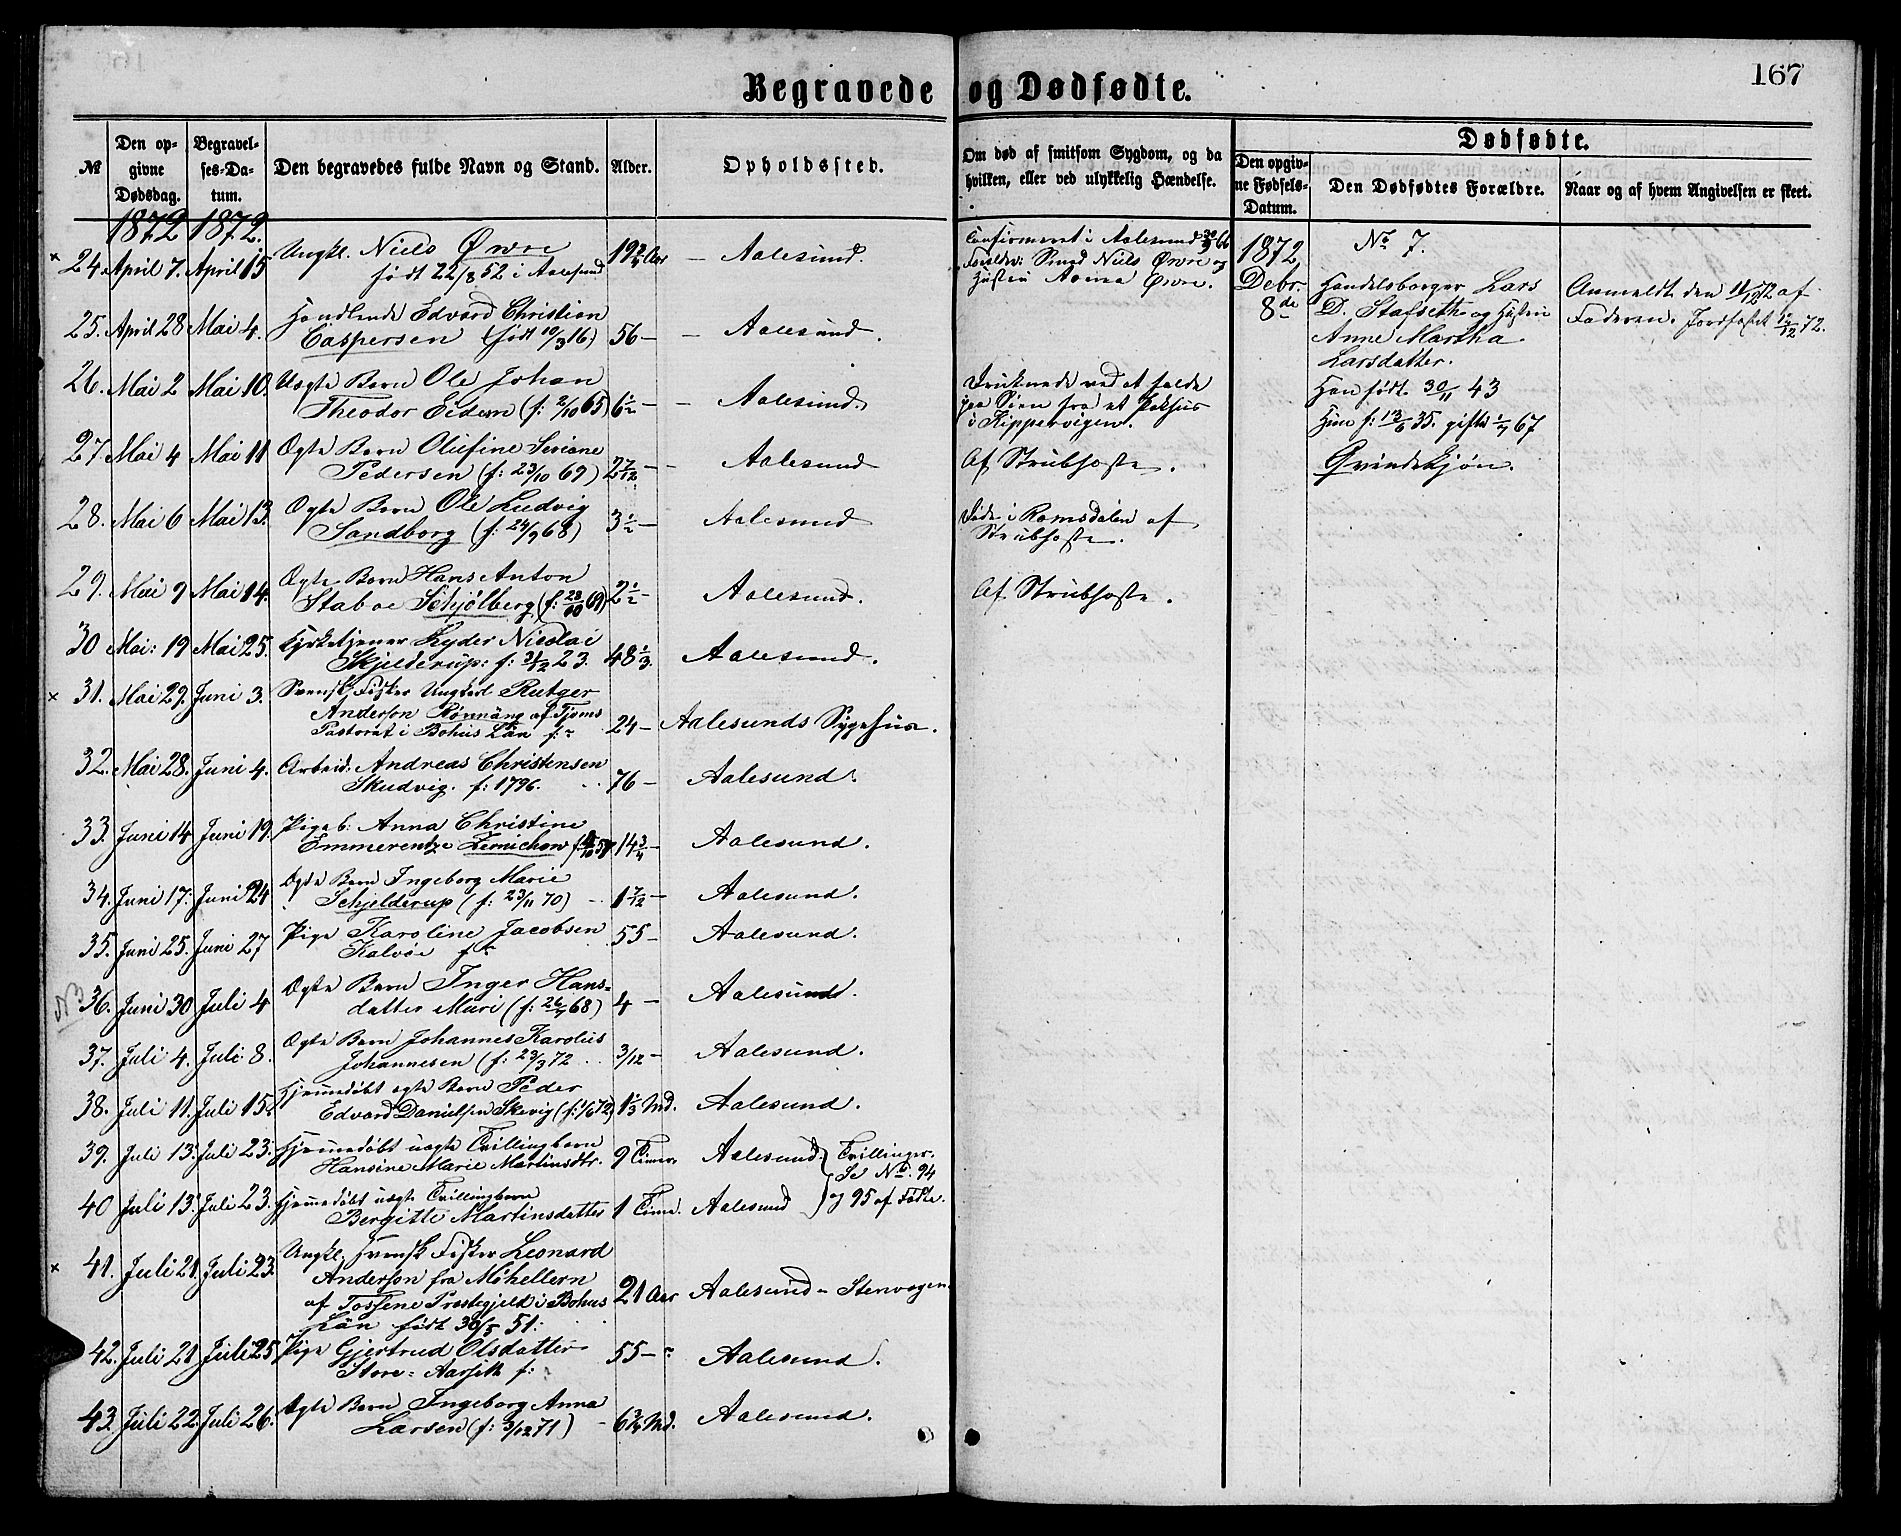 167
Begravede og Dødfødte.
№
Den opgivne Dødsdag.
Begravelses-Datum.
Den begravedes fulde Navn og Stand.
Alder.
Opholdssted.
Om død af smitsom Sygdom, og da hvilken, eller ved ulykkelig Hændelse.
Dødfødte.
Den opgivne Fødsels-Datum.
Den Dødfødtes Forældre.
Naar og af hvem Angivelsen er skeet.
1872 1872.
× 24. April 7. April 15 Ungkl. Niels Ørvre 19 3/4 Aar – Aalesund. Confirmeret i Aalesund 66
født 22/8 52 i Aalesund Forældre: Smed Niels Ørvre og
Hustru Anna Ørvre.
25. April 28 Mai 4. Handlende Edvard Christian
Caspersen (født 10/3 16) 56 – – Aalesund.
26. Mai 2 Mai 10. Uægte Barn Ole Johan Druknede ved at falde
Theodor Eidem (f: 2/10 65) 6 1/2 – – Aalesund. paa Søen fra et Pakhus
i Kippervigen.
27. Mai 4 Mai 11 Ægte Barn Olufine Seriane
Pedersen (f: 23/10 69) 2 7/12 – – Aalesund Af Strubehoste.
28. Mai 6 Mai 13. Ægte Barn Ole Ludvig
Sandborg (f: 24/9 68) 3 1/2 – Aalesund Døde i Romsdalen af
Strubehoste.
29. Mai 9 Mai 14. Ægte Barn Hans Anton
Staboe Schjølberg (f: 28/10 69) 2 1/2 – Aalesund. Af Strubehoste.
30 Mai: 19 Mai 25. Kirketjener Lyder Nicolai
Skjelderup: f: 31/12 23. 48 1/3. Aalesund.
× 31. Mai 29. Juni 3. Svensk Fisker Ungkarl Rutger
Anderson Rønnäng af Tjøms
Pastorat i Bohus Län f: 24 – Aalesunds Sygehus.
32. Mai 28. Juni 4. Arbeid: Andreas Christensen
Skudvig. f: 1796. 76 – Aalesund.
33. Juni 14 Juni 19. Pigeb: Anna Christine
Emmerentze 14 3/4 – Aalesund.
34. Juni 17: Juni 24 Ægte Barn Ingeborg Marie
Schjelderup (f: 23/11 70) – 1 7/12 – Aalesund.
35. Juni 25. Juni 27 Pige Karoline Jacobsen
Kalvøe f: 55 – Aalesund.
NB 36. Juni 30 Juli 4 Ægte Barn Inger Hans-
datter Muri (f: 26/7 68) 4 – Aalesund.
37. Juli 4. Juli 8. Ægte Barn Johannes Karolius
Johannesen (f: 29/3 72 3/12 – Aalesund.
38. Juli 11. Juli 15. Hjemmedøbt ægte Barn Peder
Edvard Danielsen Skevig (f: 1/6 72) 1 1/3 Md. Aalesund.
39. Juli 13. Juli 23. Hjemmedøbt uægte Tvillingbarn
Hansine Marie Martinsdtr. 9 Timer. Aalesund. Tvillinger.
Se No. 94
40 Juli 13. Juli 23. Hjemmedøbt uægte Tvillingbarn
Bergitte Martinsdatter 1 Time. Aalesund og 95 af Fødte.
× 41. Juli 21. Juli 23. Ungkl. Svensk Fisker Leonard
Anderson fra Møhellern
af Tossene Præstegjeld i Bohus 21 Aar Aalesund – Stenvogen
Län født 30/5 51:
42. Juli 21 Juli 25 Pige Gjertrud Olsdatter
Store-Aarseth f: 55 – Aalesund.
43. Juli 22. Juli 26. Ægte Barn Ingeborg Anna
Larsen (f: 3/12 71) – 6 3/4 Md. Aalesund.
1872
Debr.
8de
No 7.
Handelsborger Lars
D. Stafseth og Hustru
Anne Martha
Larsdatter.
Han født 30/11 43
Hun f: 13/6 35. gifte 67
Qvindekjøn.
Anmeldt den 11/12 72 af
Faderen. Jordfæstet 12/12 72.